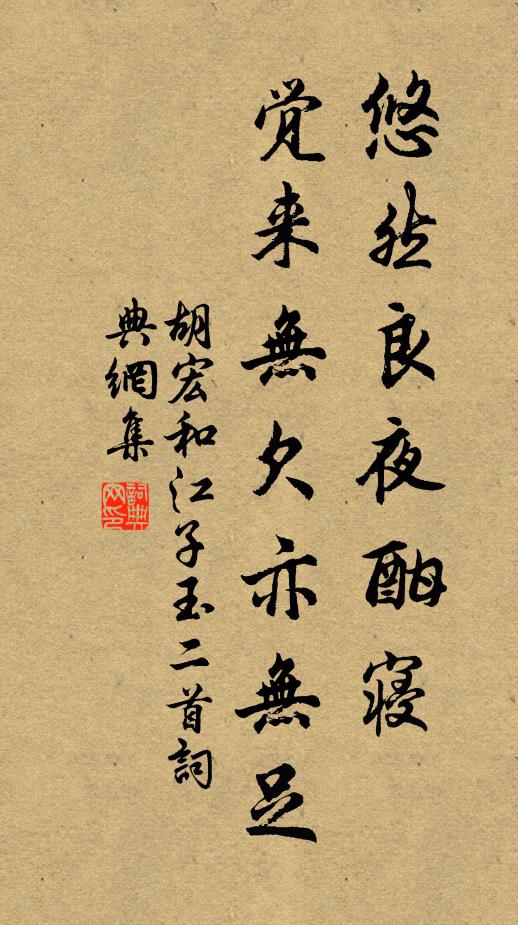 悠然良夜酣寝
覚来無欠亦無足
胡宏和江子玉二首詞
典網集
詞典网印